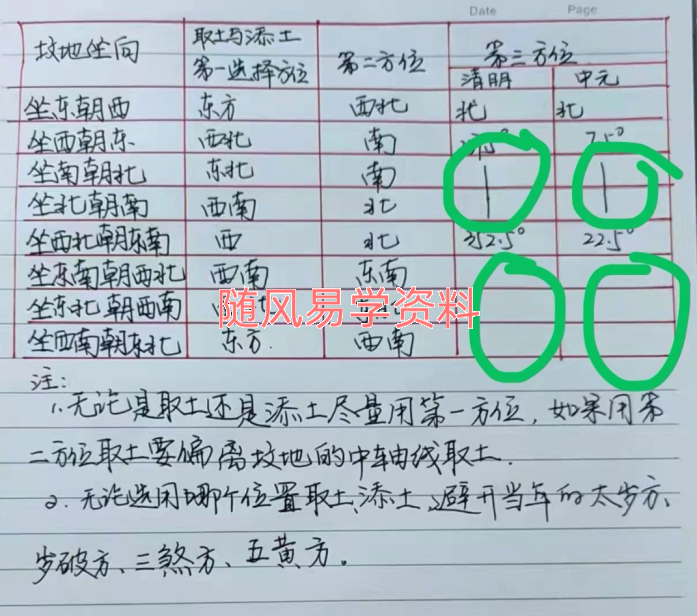 Date Page
坟地坐向 取土与添土 第三方位
第一选择方位 第二方位 清明 中元
坐东朝西 东方 西北 北 北
坐西朝东 西北 南 7.5°
坐南朝北 东北 南
坐北朝南 西南 北
坐西北朝东南 西 北 352.5° 22.5°
坐东南朝西北 西南 东南
坐东北朝西南
坐西南朝东北 东方. 西南
随风易学资料
注:
1.无论是取土还是添土尽量用第一方位,如果用第
二方位取土要偏离坟地的中轴线取土.
2.无论选用哪个位置取土、添土、避开当年的太岁方、
岁破方、三煞方、五黄方.